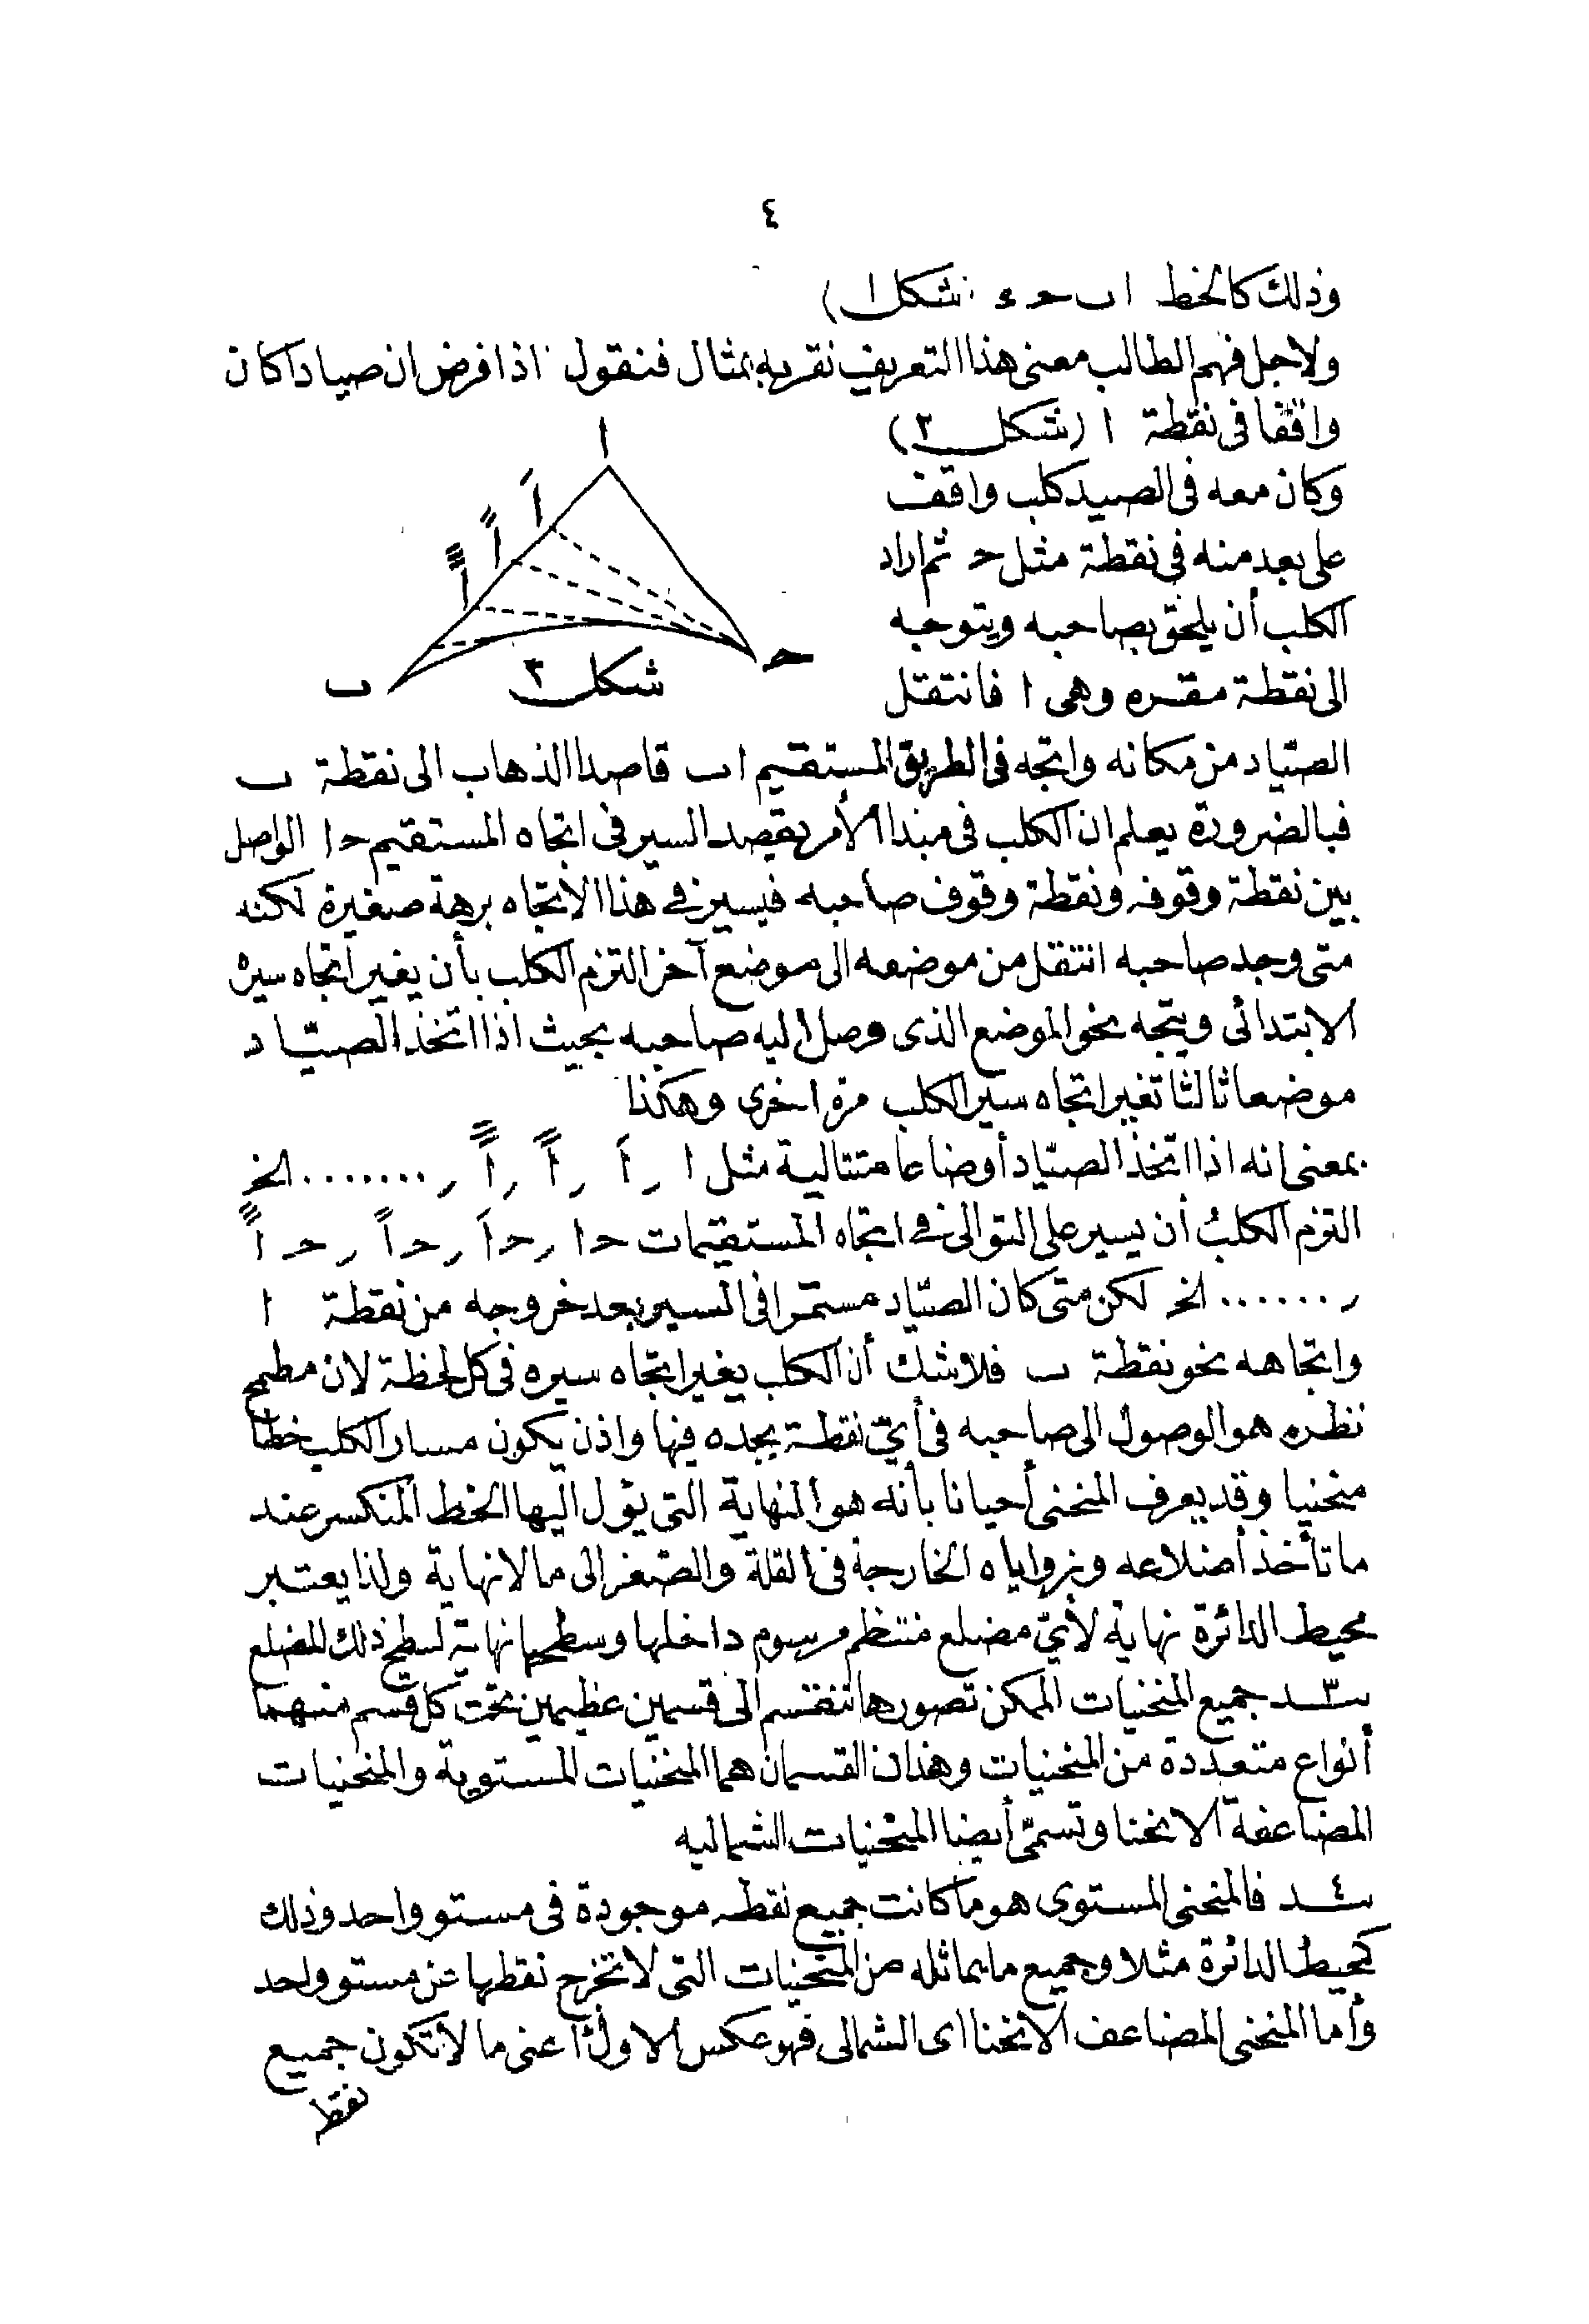 ٤
وذلك كالخط ا ب ح ء (شكل ١)
ولاجل فهم الطالب معنى هذا التعريف نقربه بمثال فنقول اذا فرض ان صيادا كان
واقفا فى نقطة ا (شكل ٢)
وكان معه فى الصيد كلب واقف
على بعد منه فى نقطة مثل ح ثم اراد
الكلب أن يلحق بصاحبه ويتوجه
الى نقطة مقره وهى ا فانتقل
ا
اَ
اً
ا
ح
ب
شكل ٢
الصيّاد من مكانه واتجه فى الطريق المستقيم ا ب قاصدا الذهاب الى نقطة ب
فبالضرورة يعلم ان الكلب فى مبدا الأمر يقصد السير فى اتجاه المستقيم ح ا الواصل
بين نقطة وقوفه ونقطة وقوف صاحبه فيسير فى هذا الاتجاه برهة صغيرة لكنه
متى وجد صاحبه انتقل من موضعه الى موضع آخر التزم الكلب بأن يغير اتجاه سيره
الابتدائى ويتجه نحو الموضع الذى وصل اليه صاحبه بحيث اذا اتخذ الصيّاد
موضعا ثالثا تغير اتجاه سير الكلب مرة اخرى وهكذا
بمعنى انه اذا اتخذ الصيّاد أوضاعا متتالية مثل ا ر اَ ر اً ر اً ر ........ الخ
التزم الكلبُ أن يسير على التوالى فى اتجاه المستقيمات ح ا ر ح اَ ر ح اً ر ح اً
ر ...... الخ لكن متى كان الصيّاد مستمرا فى السير بعد خروجه من نقطة ا
واتجاهه نحو نقطة ب فلا شك أن الكلب يغير اتجاه سيره فى كل لحظة لان مطمح
نظره هو الوصول الى صاحبه فى أىّ نقطة يجده فيها واذن يكون مسار الكلب خطا
منحنيا وقد يعرف المنحنى أحيانا بأنه هو النهاية التى يؤل اليها الخط المنكسر عند
ما تأخذ أضلاعه وزواياه الخارجة فى القلة والصغر الى ما لا نهاية ولذا يعتبر
محيط الدائرة نهاية لأىّ مضلع منتظم مرسوم داخلها وسطحها نهاية لسطح ذلك المضلع
ســ٣ــد جميع المنحنيات الممكن تصورها تنقسم الى قسمين عظيمين تحت كل قسم منهما
أنواع متعددة من المنحنيات وهذان القسمان هما المنحنيات المستوية والمنحنيات
المضاعفة الانحنا وتسمّى أيضا المنحنيات الشماليه
ســ٤ــد فالمنحنى المستوى هو ما كانت جميع نقطه موجودة فى مستو واحد وذلك
كمحيط الدائرة مثلا وجميع ما يماثله من المنحنيات التى لا تخرج نقطها عن مستو واحد
وأما المنحنى المضاعف الانحنا اى الشمالى فهو عكس الاول اعنى ما لا تكون جميع
نقط